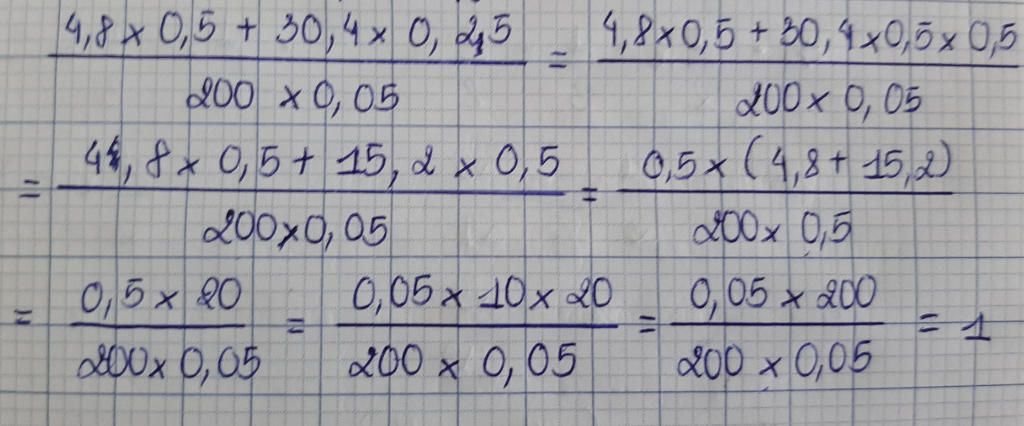 4,8 x 0,5 + 30,4 x 0,25 / 200 x 0,05 = 4,8 x 0,5 + 30,4 x 0,5 x 0,5 / 200 x 0,05
= 4,8 x 0,5 + 15,2 x 0,5 / 200 x 0,05 = 0,5 x (4,8 + 15,2) / 200 x 0,5
= 0,5 x 20 / 200 x 0,05 = 0,05 x 10 x 20 / 200 x 0,05 = 0,05 x 200 / 200 x 0,05 = 1